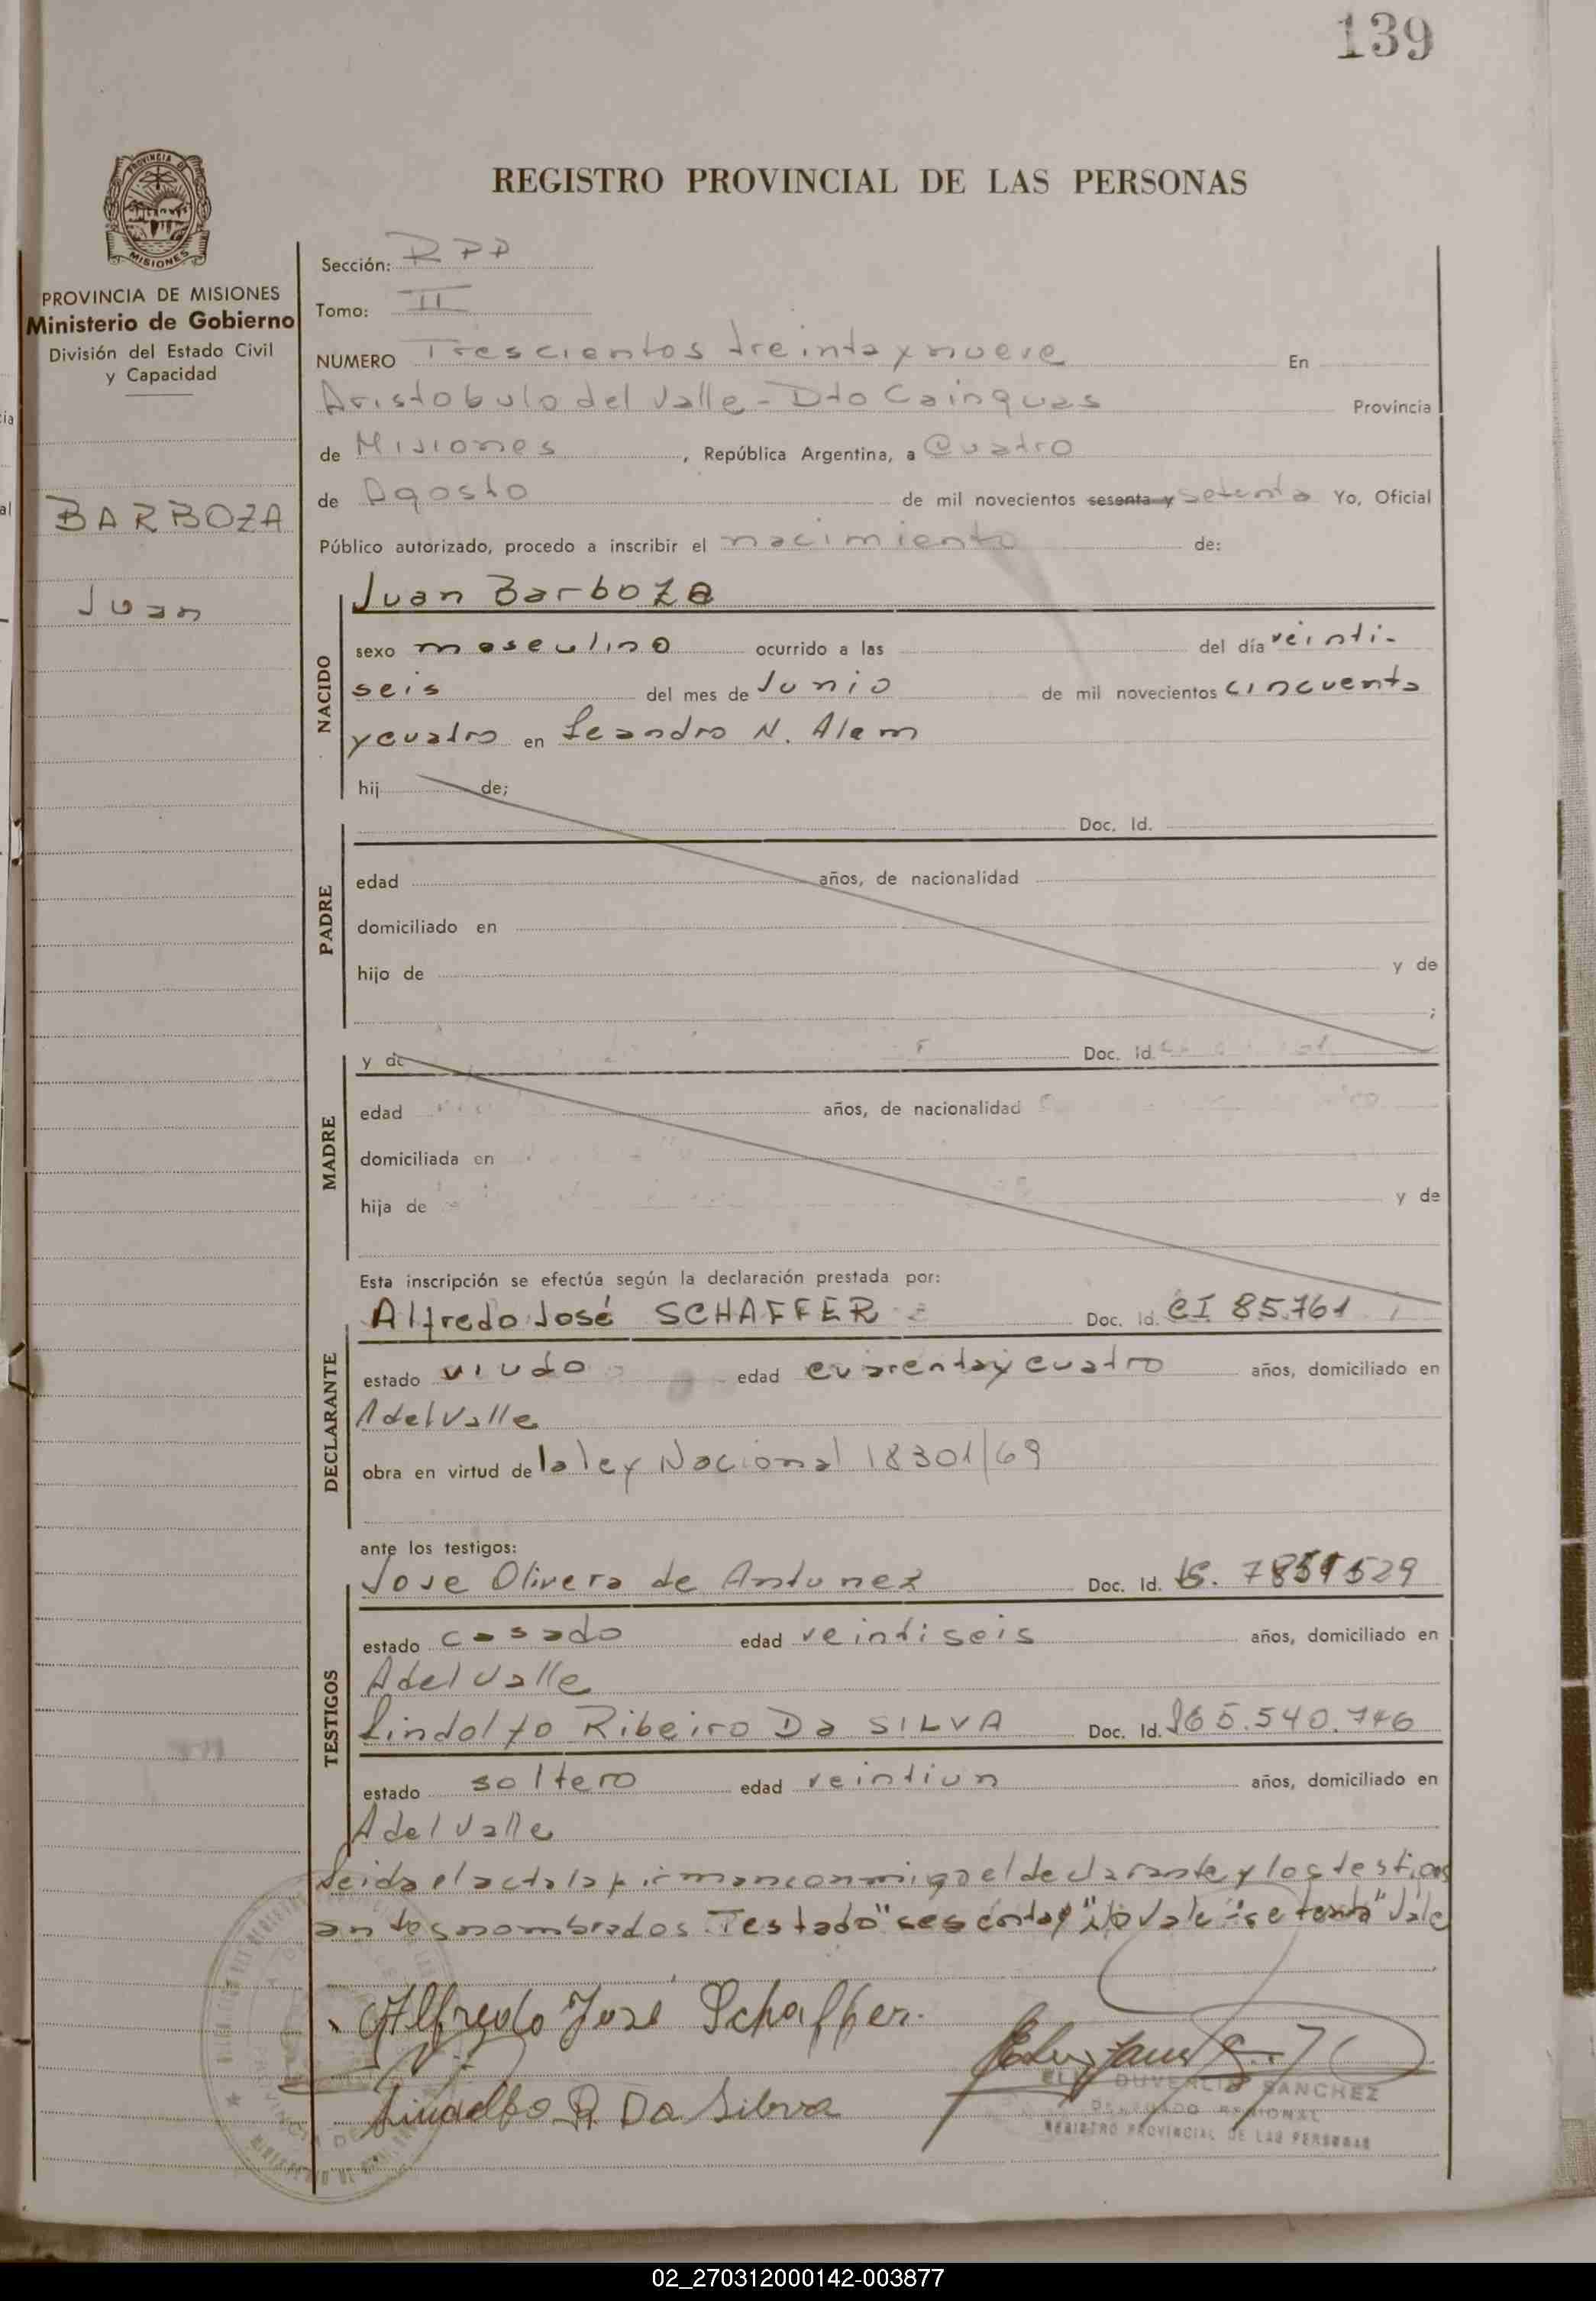 139
PROVINCIA DE
MISIONES
PROVINCIA DE MISIONES
Ministerio de Gobierno
División del Estado Civil
y Capacidad
BARBOZA
Juan
REGISTRO PROVINCIAL DE LAS PERSONAS
Sección: RPP
Tomo: II
NUMERO Trescientos treinta y nueve En
Aristobulo del Valle - Dto Cainguas Provincia
de Misiones, República Argentina, a Cuatro
de Agosto de mil novecientos sesenta y setenta Yo, Oficial
Público autorizado, procedo a inscribir el nacimiento de:
NACIDO
Juan Barboza
sexo masculino ocurrido a las del día veinti-
seis del mes de Junio de mil novecientos cincuenta
y cuatro en Leandro N. Alem
hij de;
PADRE
Doc. Id.
edad años, de nacionalidad
domiciliado en
hijo de y de
;
MADRE
y de Doc. Id.
edad años, de nacionalidad
domiciliada en
hija de y de
Esta inscripción se efectúa según la declaración prestada por:
DECLARANTE
Alfredo José SCHAFFER Doc. Id. CI 85.761
estado viudo edad cuarenta y cuatro años, domiciliado en
A del Valle
obra en virtud de la ley Nacional 18301/69
ante los testigos:
TESTIGOS
Jose Olivera de Antunez Doc. Id.
estado casado edad veintiseis años, domiciliado en
A del Valle
Lindolfo Ribeiro Da SILVA Doc. Id.
estado soltero edad veintiun años, domiciliado en
A del Valle
Leida el acta la firman conmigo el declarante y los testigos
antes nombrados. Testado "sesenta y" No Vale "setenta" Vale
Alfredo José Schaffer.
Lindolfo R Da Silva
DUVERLIS SANCHEZ
DELEGADO REGIONAL
REGISTRO PROVINCIAL DE LAS PERSONAS
02_270312000142-003877